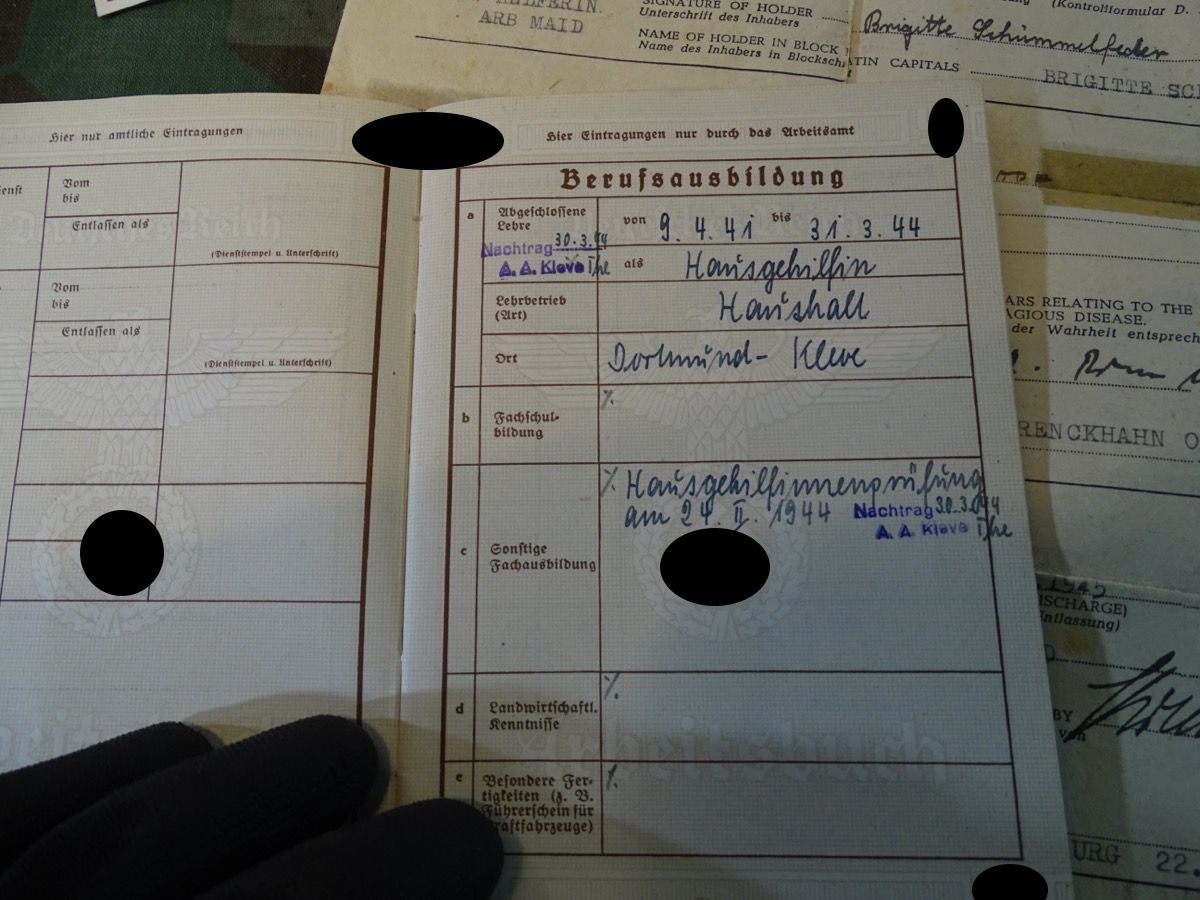 HELFERIN
ARB MAID
SIGNATURE OF HOLDER
Unterschrift des Inhabers
NAME OF HOLDER IN BLOCK
Name des Inhabers in Blocksch
(Kontrollformular D.
Brigitte Schümmelfeder
TIN CAPITALS
BRIGITTE SC
Hier nur amtliche Eintragungen
enst
Vom
bis
Entlassen als
(Dienststempel u. Unterschrift)
Vom
bis
Entlassen als
(Dienststempel u. Unterschrift)
Hier Eintragungen nur durch das Arbeitsamt
Berufsausbildung
a
Abgeschlossene
Lehre
von 9. 4. 41 bis 31. 3. 44
Nachtrag 30.3.44
A. A. Kleve
als Hausgehilfin
Lehrbetrieb
(Art)
Haushalt
Ort
Dortmund- Kleve
b
Fachschul-
bildung
%.
c
Sonstige
Fachausbildung
%. Hausgehilfinnenprüfung
am 24. II. 1944
Nachtrag 30.3.44
A. A. Kleve
d
Landwirtschaftl.
Kenntnisse
%.
e
Besondere Fer-
tigkeiten (z. B.
Führerschein für
Kraftfahrzeuge)
%.
Arbeitsbuch
ARS RELATING TO THE
AGIOUS DISEASE.
der Wahrheit entsprech
RENCKHAHN O
1945
ISCHARGE)
Entlassung)
BY
URG 22.